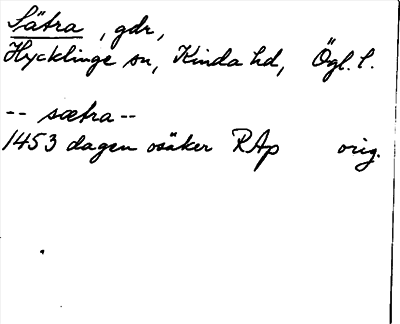 Sätra, gdr,
Hycklinge sn, Kinda hd, Ögl. l.
-- sætra --
1453 dagen osäker RAp orig.